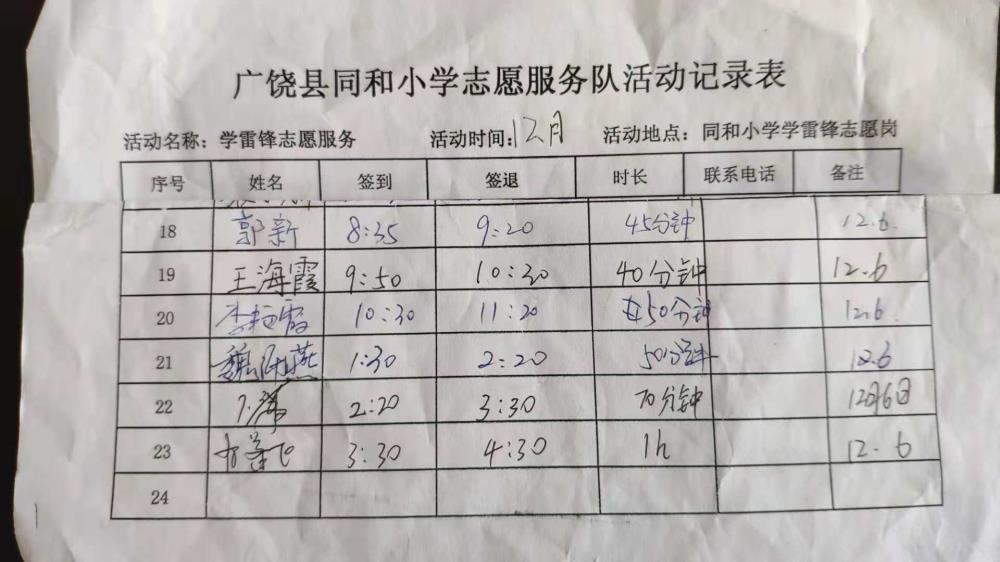 广饶县同和小学志愿服务队活动记录表
活动名称：学雷锋志愿服务 活动时间：12月 活动地点：同和小学学雷锋志愿岗
序号 姓名 签到 签退 时长 联系电话 备注
18 郭新 8:35 9:20 45分钟 12.6.
19 王海霞 9:50 10:30 40分钟 12.6
20 10:30 11:20 50分钟 12.6.
21 魏 燕 1:30 2:20 50分钟 12.6
22 2:20 3:30 70分钟 12月6日
23 3:30 4:30 1h 12.6
24